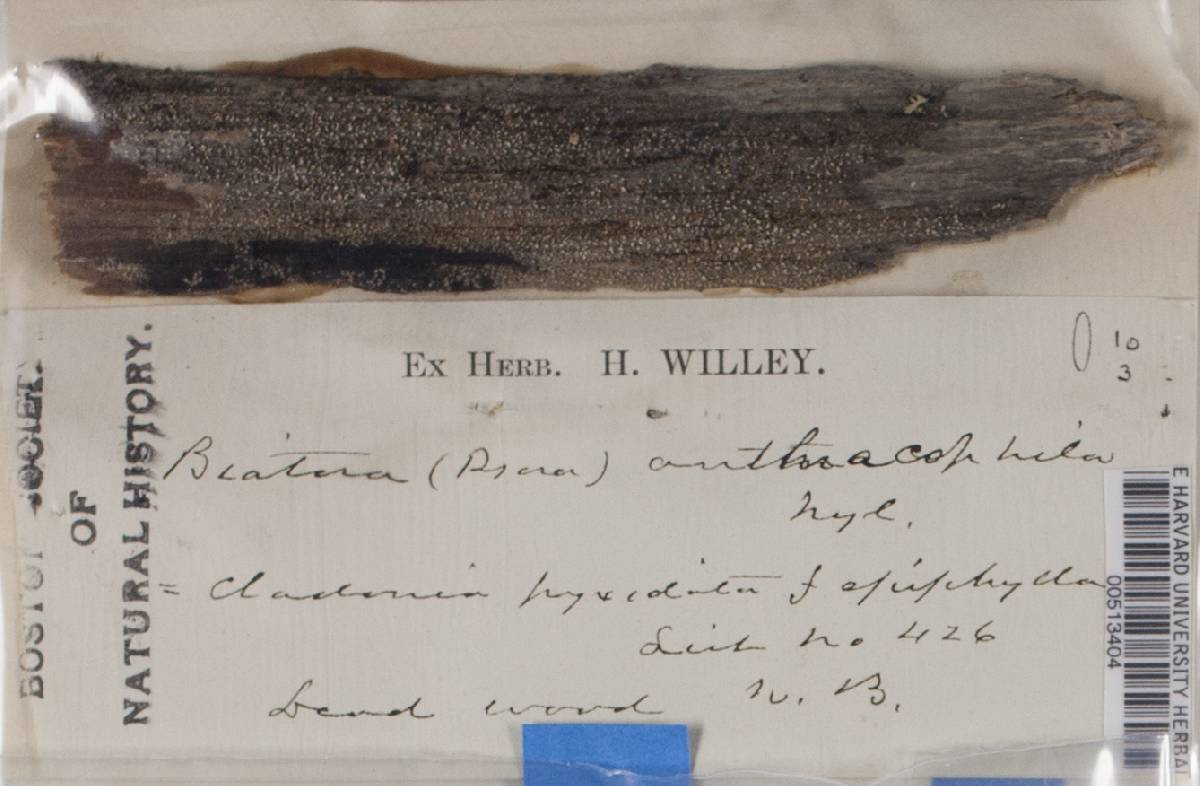 Ex Herb. H. WILLEY.
10
3
Biatora (Psora) anthracophila
Nyl.
= Cladonia pyxidata f epiphylla
List No 426
Dead wood N. B.
BOSTON SOCIET
OF
NATURAL HISTORY.
E HARVARD UNIVERSITY HERBAI
00513404